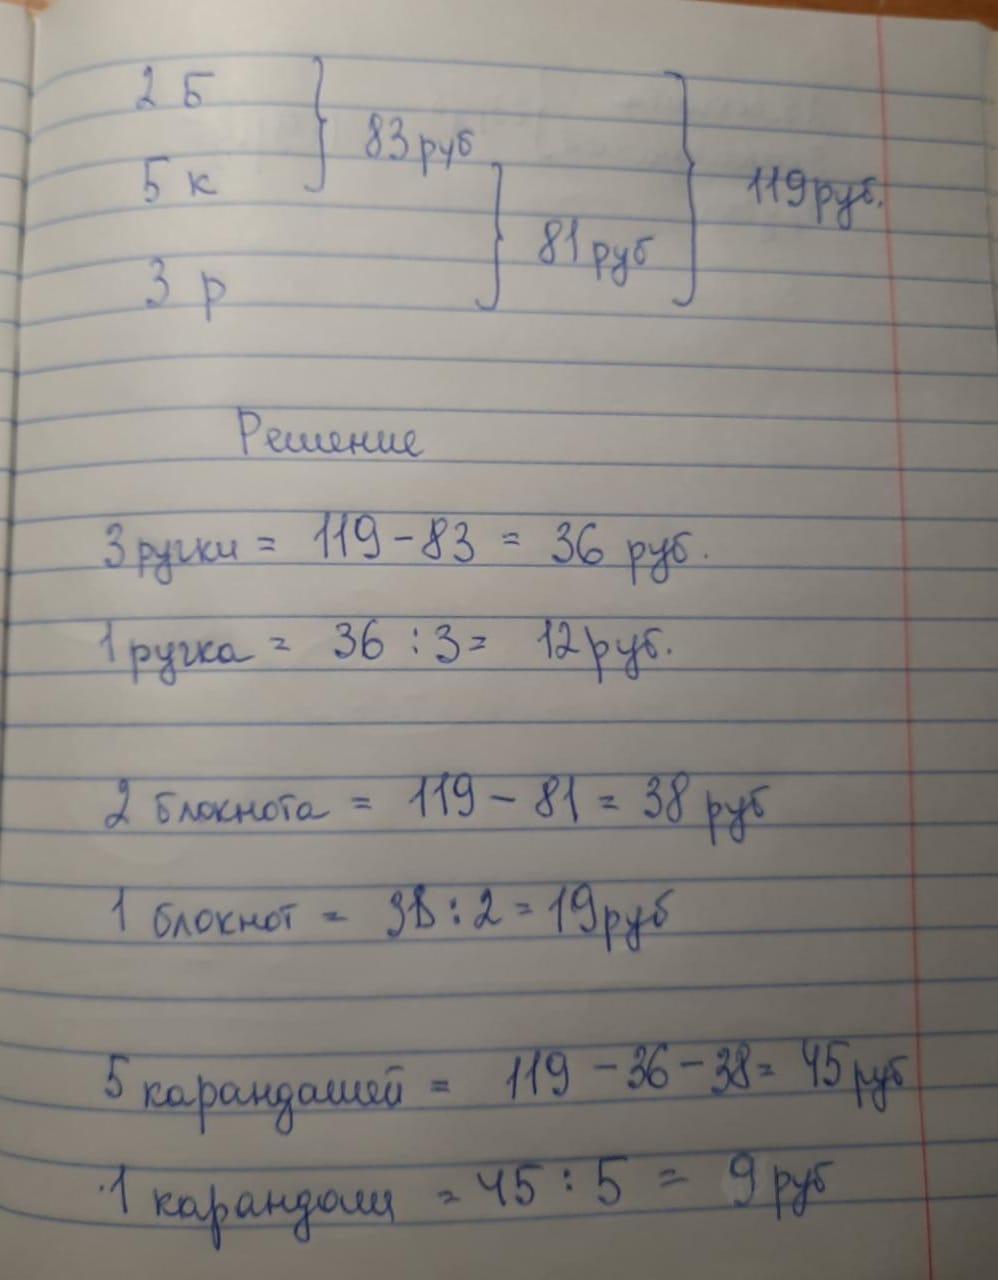 2 Б
83 руб
5 к
119 руб.
81 руб
3 р
Решение
3 ручки = 119 - 83 = 36 руб.
1 ручка = 36 : 3 = 12 руб.
2 блокнота = 119 - 81 = 38 руб
1 блокнот = 38 : 2 = 19 руб
5 карандашей = 119 - 36 - 38 = 45 руб
1 карандаш = 45 : 5 = 9 руб